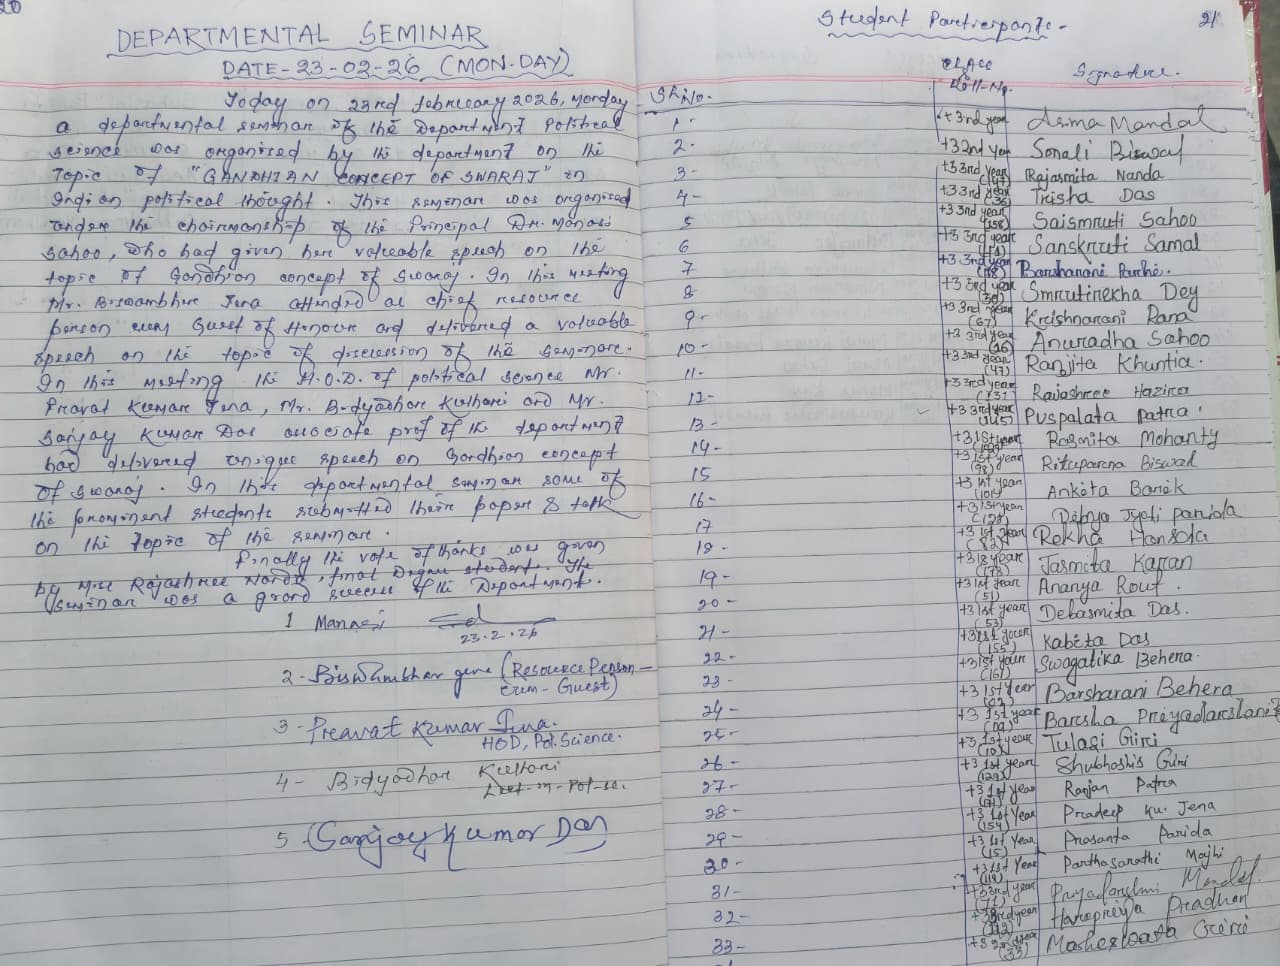 20
DEPARTMENTAL SEMINAR
DATE-23-02-26 (MON-DAY)
Today on 23rd february 2026, Monday
a departmental seminar of the Department Political
science was organised by the department on the
Topic of "GANDHIAN CONCEPT OF SWARAJ" in
Indian political thought. This seminar was organised
under the chairmanship of the Principal Dr. Manasi
Sahoo, who had given her valuable speech on the
topic of Gandhian concept of Swaraj. In this meeting
Mr. Biswambhar Jena attended as chief resource
person cum Guest of Honour and delivered a valuable
speech on the topic of discussion of the seminar.
In this meeting the H.O.D. of political science Mr.
Pravat Kumar Jena, Mr. Bidyadhar Kulhari and Mr.
Sanjay Kumar Das associate prof of the department
had delivered unique speech on Gandhian concept
of Swaraj. In this departmental seminar some of
the prominent students submitted their paper & talk
on the topic of the seminar.
Finally the vote of thanks was given
by Miss Rajashree Nanda, final Degree student. The
seminar was a grand success of the Department.
1 Manasi
23.2.26
2- Biswambhar Jena (Resource Person-
cum-Guest)
3- Pravat Kumar Jena.
HOD, Pol. Science.
4- Bidyadhar Kulhari
Lect-in-Pol-sc.
5 Sanjay Kumar Das
Student Participants- 21
SR.No. CLASS & Roll-No. Signature.
1- +3 3rd year Asima Mandal
2- +3 2nd Year Sonali Biswal
3- +3 3rd Year (147) Rajasmita Nanda
4- +3 3rd year (36) Trisha Das
5 +3 3rd year (158) Saismruti Sahoo
6 +3 3rd year Sanskruti Samal
7 +3 3rd year Barsharani
8 +3 3rd year (30) Smrutirekha Dey
9- +3 3rd year (67) Krishnarani Rana
10- +3 3rd year Anuradha Sahoo
11- +3 3rd year (47) Ranjita Khuntia.
12- +3 3rd year Rajashree Hazira
13- +3 3rd year (145) Puspalata Patra
14- +3 1st year Rasmita Mohanty
15 +3 1st year (98) Rituparna Biswal
16- +3 1st year (101) Ankita Barik
17 +3 1st year (128) Dibya Jyoti Parida
18- +3 1st year (82) Rekha Hansda
19- +3 1st year (173) Jasmita Karan
20- +3 1st year (51) Ananya Rout.
21- +3 1st year (53) Debasmita Das.
22- +3 1st year (155) Kabita Das
23- +3 1st year (161) Swagatika Behera
24- +3 1st Year (02) Barsharani Behera
25- +3 1st year Barsha Priyadarshani
26- +3 1st year (10) Tulasi Giri
27- +3 1st year (129) Shubhasis Giri
28- +3 1st Year (171) Ranjan Patra
29- +3 1st Year (154) Pradeep Ku. Jena
30- +3 1st Year (15) Prasanta Parida
31- +3 1st Year (119) Parthasarathi Majhi
32- +3 3rd year (71) Priyadarshni Mandal
33- +3 3rd year (112) Harapriya Pradhan
(33) Masheswata Giri